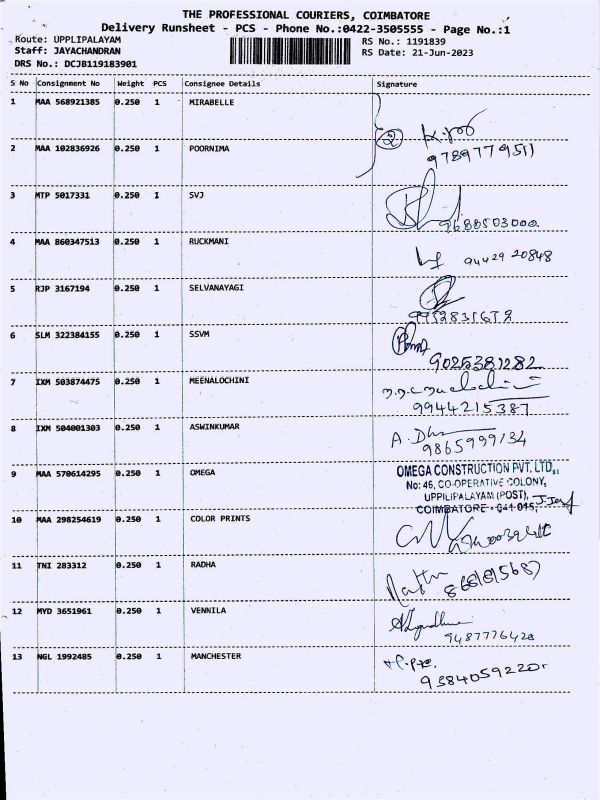 THE PROFESSIONAL COURIERS, COIMBATORE
Delivery Runsheet - PCS - Phone No.:0422-3505555 - Page No.:1
Route: UPPLIPALAYAM RS No.: 1191839
Staff: JAYACHANDRAN RS Date: 21-Jun-2023
DRS No.: DCJB119183901
S No Consignment No Weight PCS Consignee Details Signature
1 MAA 568921385 0.250 1 MIRABELLE
2
2 MAA 102836926 0.250 1 POORNIMA
9789779511
3 MTP 5017331 0.250 1 SVJ
9688503000
4 MAA 860347513 0.250 1 RUCKMANI
94429 20848
5 RJP 3167194 0.250 1 SELVANAYAGI
6 SLM 322384155 0.250 1 SSVM
9025381282
7 IXM 503874475 0.250 1 MEENALOCHINI
9944215387
8 IXM 504001303 0.250 1 ASWINKUMAR
9865999134
9 MAA 570614295 0.250 1 OMEGA
OMEGA CONSTRUCTION PVT. LTD.,
No: 46, CO-OPERATIVE COLONY,
UPPILIPALAYAM (POST),
COIMBATORE - 641 015.
10 MAA 298254619 0.250 1 COLOR PRINTS
11 TNI 283312 0.250 1 RADHA
12 MYD 3651961 0.250 1 VENNILA
9487776420
13 NGL 1992485 0.250 1 MANCHESTER
9384059220